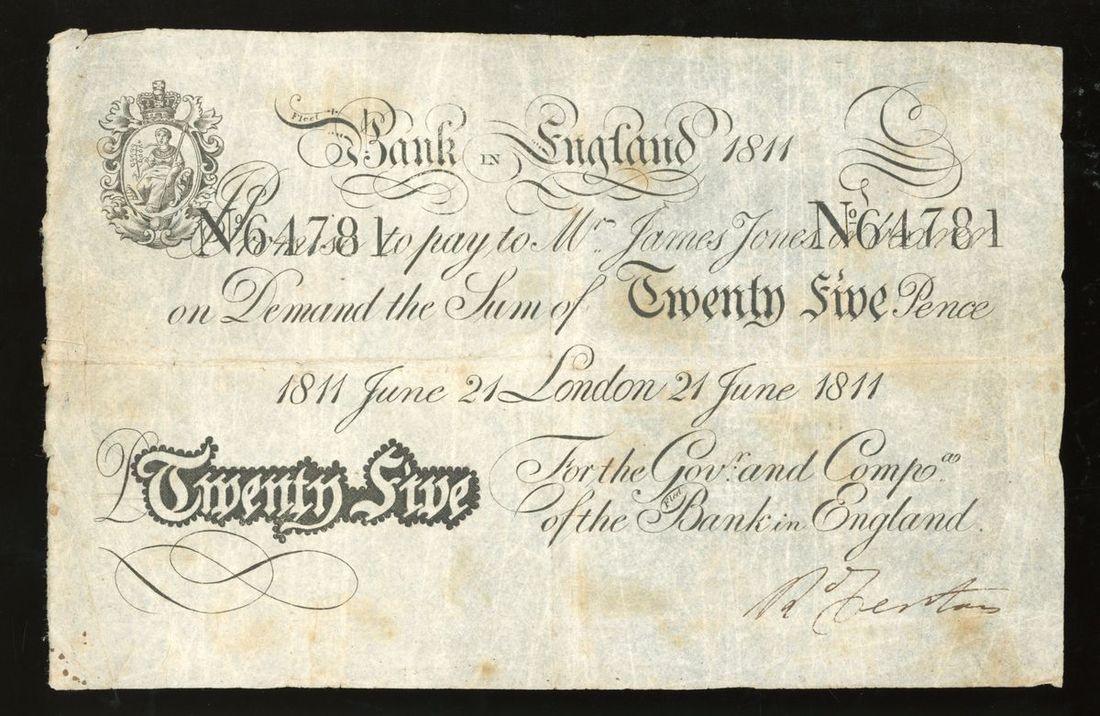 Fleet Bank IN England 1811
Nº 64781 Nº 64781
Promise to pay to Mr. James Jones or bearer
on Demand the Sum of Twenty Five Pence
1811 June 21 London 21 June 1811
£ Twenty Five
For the Govr. and Compa.
of the Fleet Bank in England.